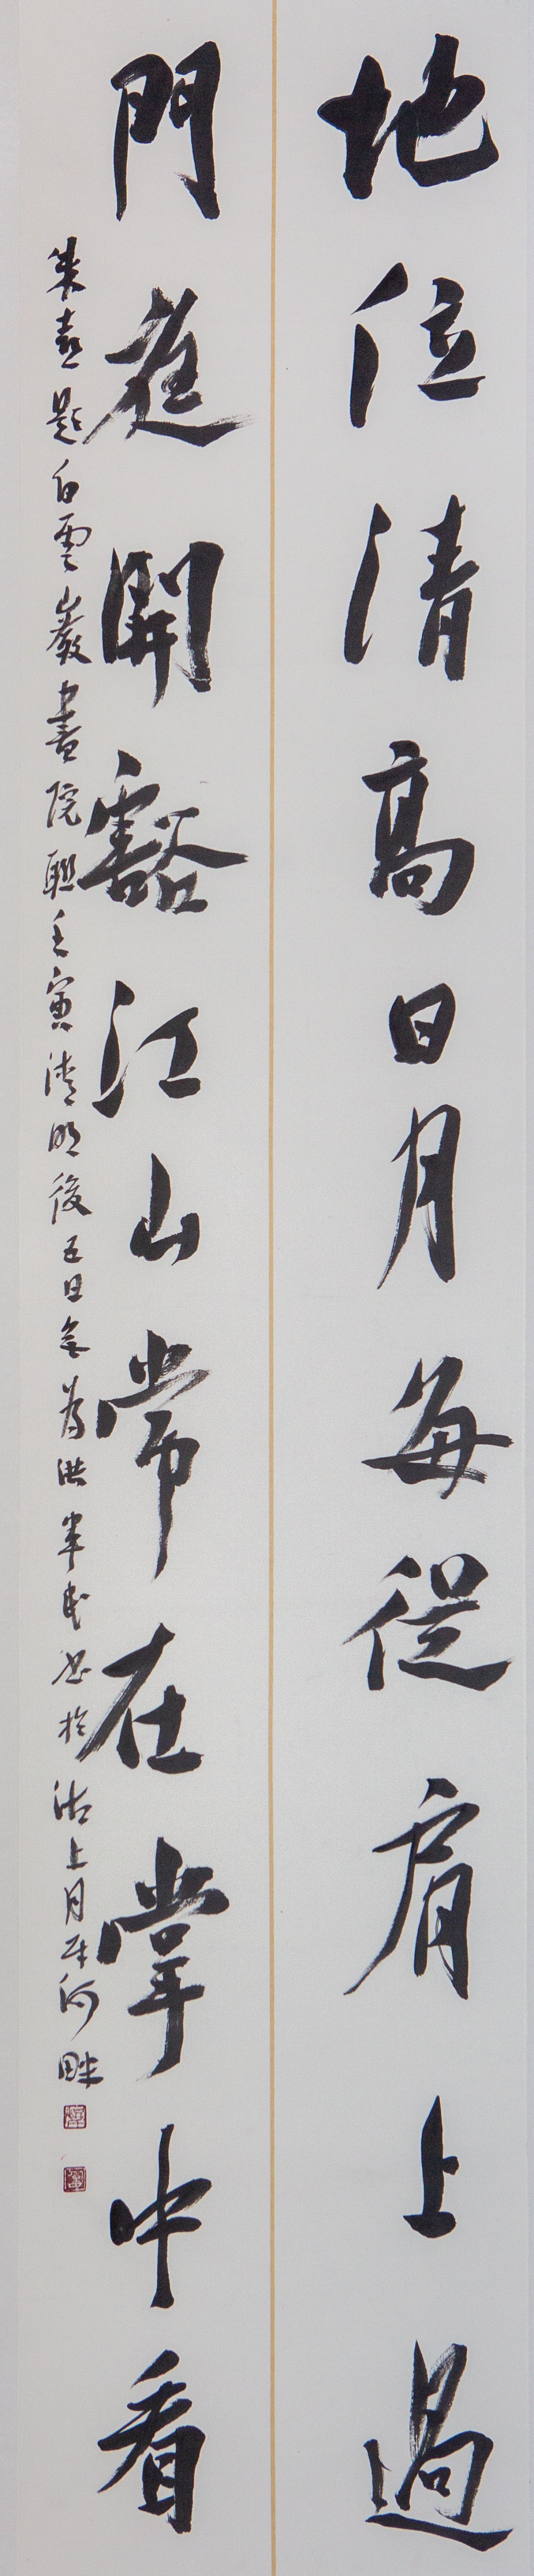 地位清高日月每從肩上過
門庭開豁江山常在掌中看
朱熹題白雲巖書院聯壬寅清明後五日無為洪軍民書於沽上月牙河畔